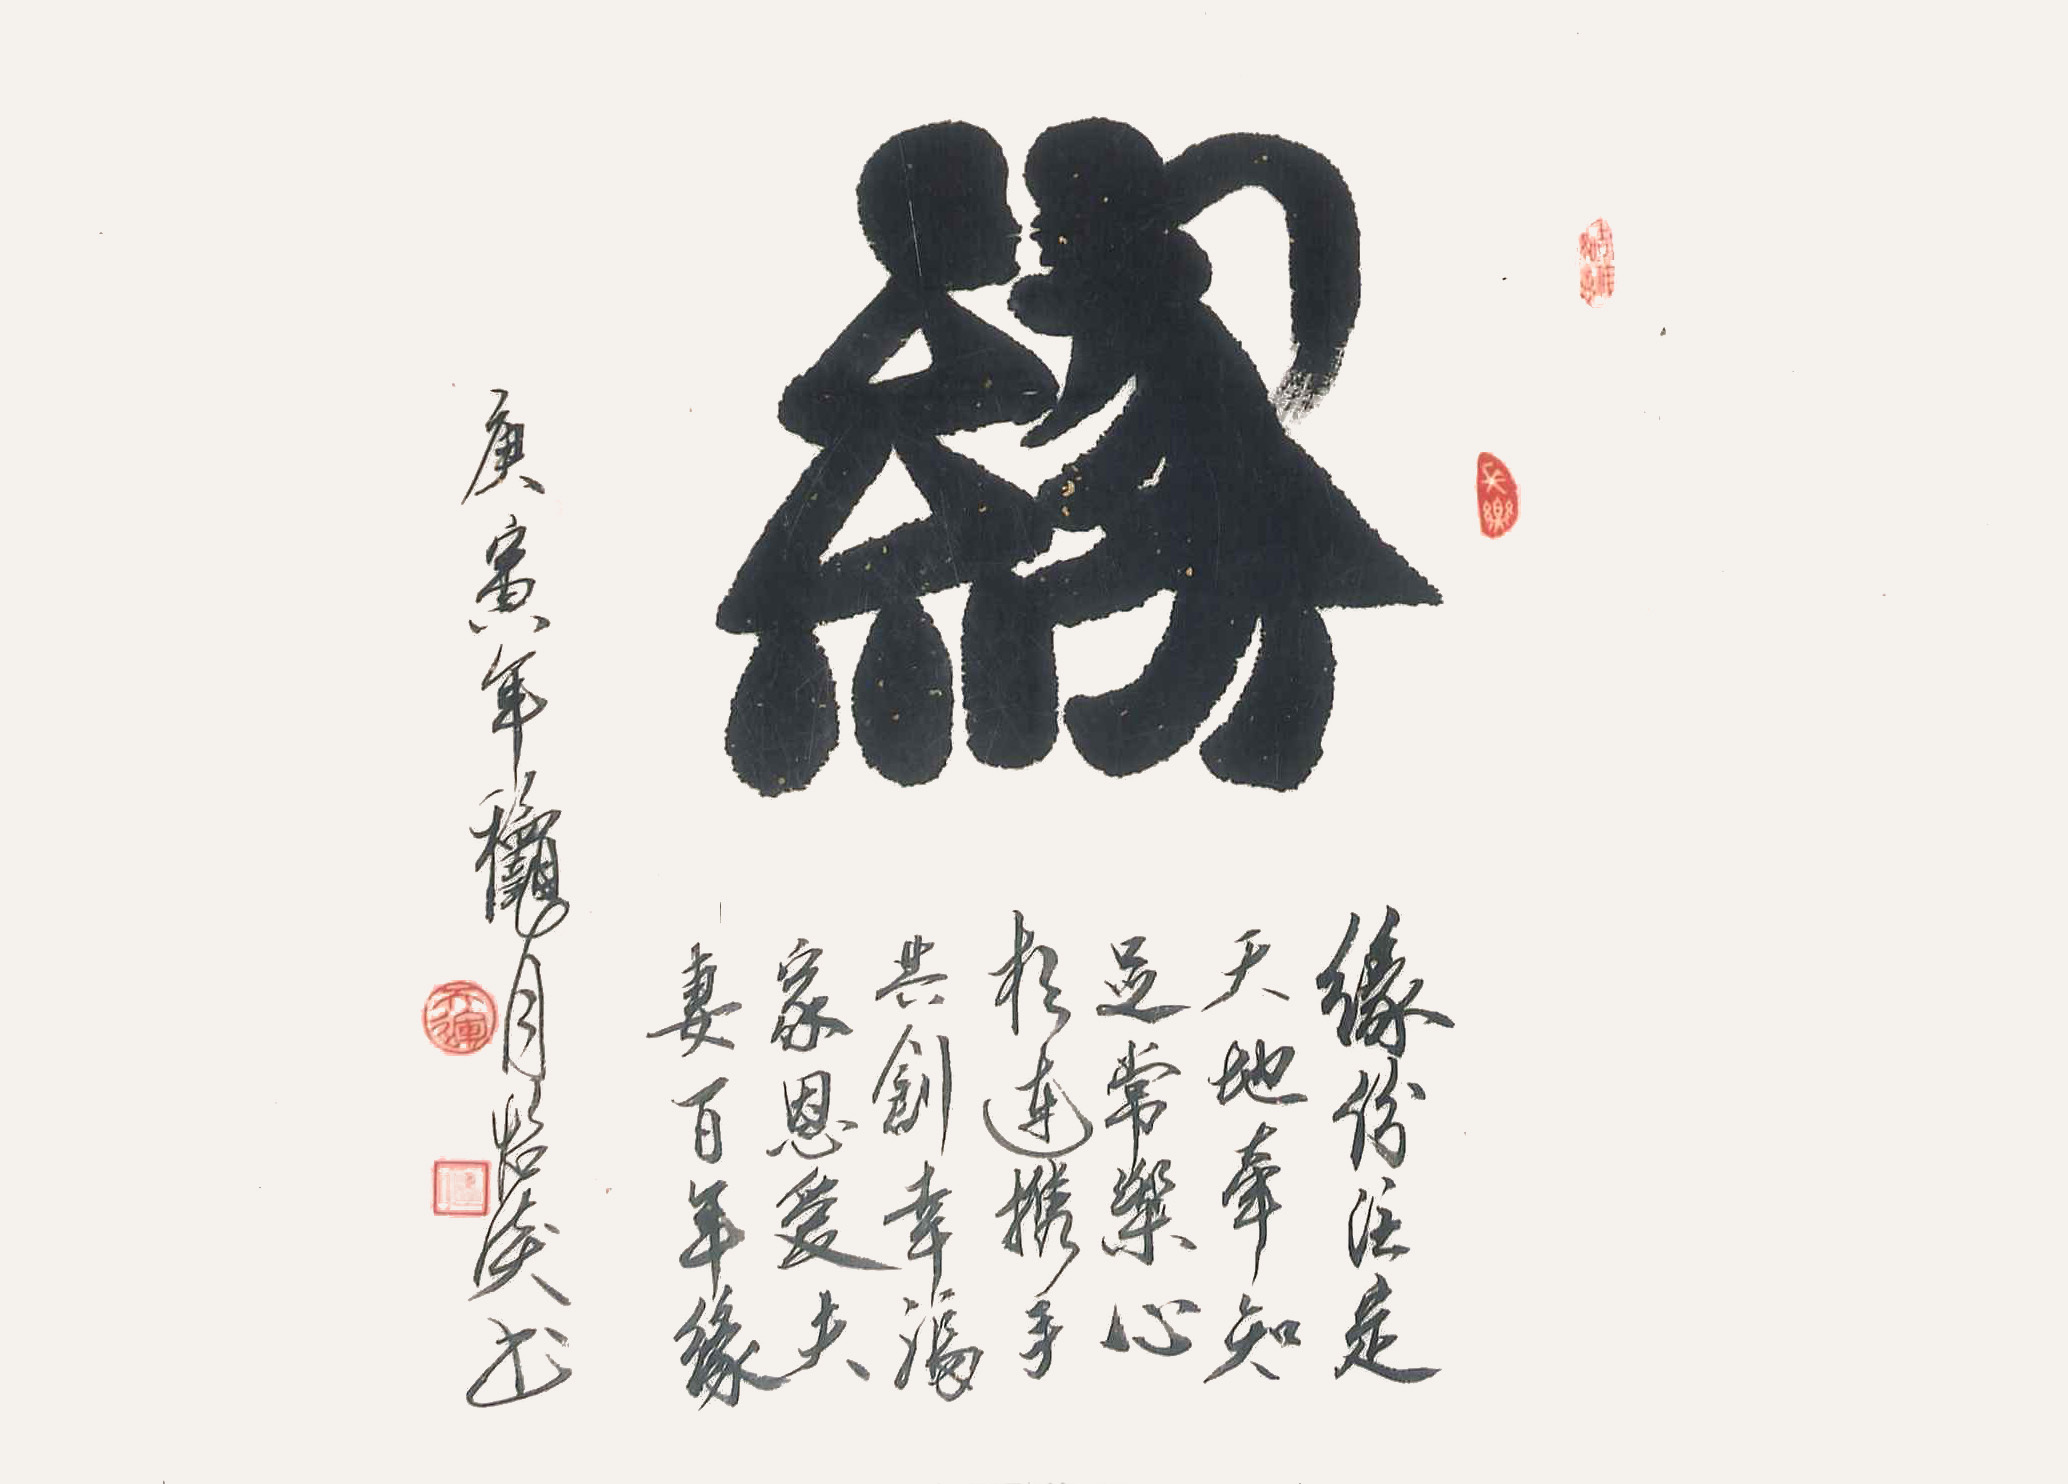 緣
緣份注定
天地牽知
足常樂心
相連攜手
共創幸福
家恩愛夫
妻百年緣
庚寅年龝月
書